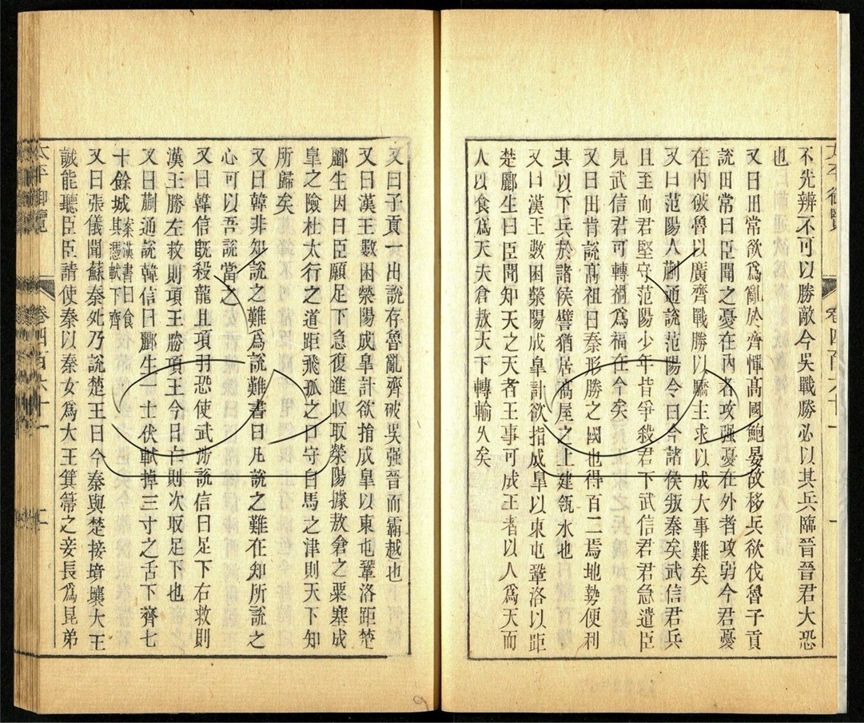 不先辨不可以勝敵今吳戰勝必以其兵臨晉晉君大恐
也
又曰田常欲爲亂於齊憚髙國鮑晏故移兵欲伐魯子貢
說田常曰臣聞之憂在內者攻强憂在外者攻弱今君憂
在內破魯以廣齊戰勝以驕主求以成大事難矣
又曰范陽人蒯通說范陽令曰今諸侯叛秦矣武信君兵
且至而君堅守范陽少年皆爭殺君下武信君君急遣臣
見武信君可轉禍爲福在今矣
又曰田肯說髙祖曰秦形勝之國也得百二焉地勢便利
其以下兵於諸侯譬猶居髙屋之上建瓴水也
又曰漢王數困滎陽成皐計欲指成皐以東屯鞏洛以距
楚酈生因曰臣聞知天之天者王事可成王者以人爲天而
人以食爲天夫倉敖天下轉輸久矣
太平御覽
卷四百六十一
又曰子貢一出說存魯亂齊破吳强晉而霸越也
又曰漢王數困滎陽成皐計欲捐成皐以東屯鞏洛距楚
酈生因曰臣願足下急復進收取滎陽據敖倉之粟塞成
皐之險杜太行之道距飛狐之口守白馬之津則天下知
所歸矣
又曰韓非知說之難爲說難書曰凡說之難在知所說之
心可以吾說當之
又曰韓信旣殺龍且項羽恐使武涉說信曰足下右救則
漢王勝左救則項王勝項王今日亡則次取足下也
又曰蒯通說韓信曰酈生一士伏軾掉三寸之舌下齊七
十餘城案漢書曰食其憑軾下齊
又曰張儀聞蘇秦死乃說楚王曰今秦與楚接境壤大王
誠能聽臣臣請使秦以秦女爲大王箕箒之妾長爲昆弟
太平御覽
卷四百六十一